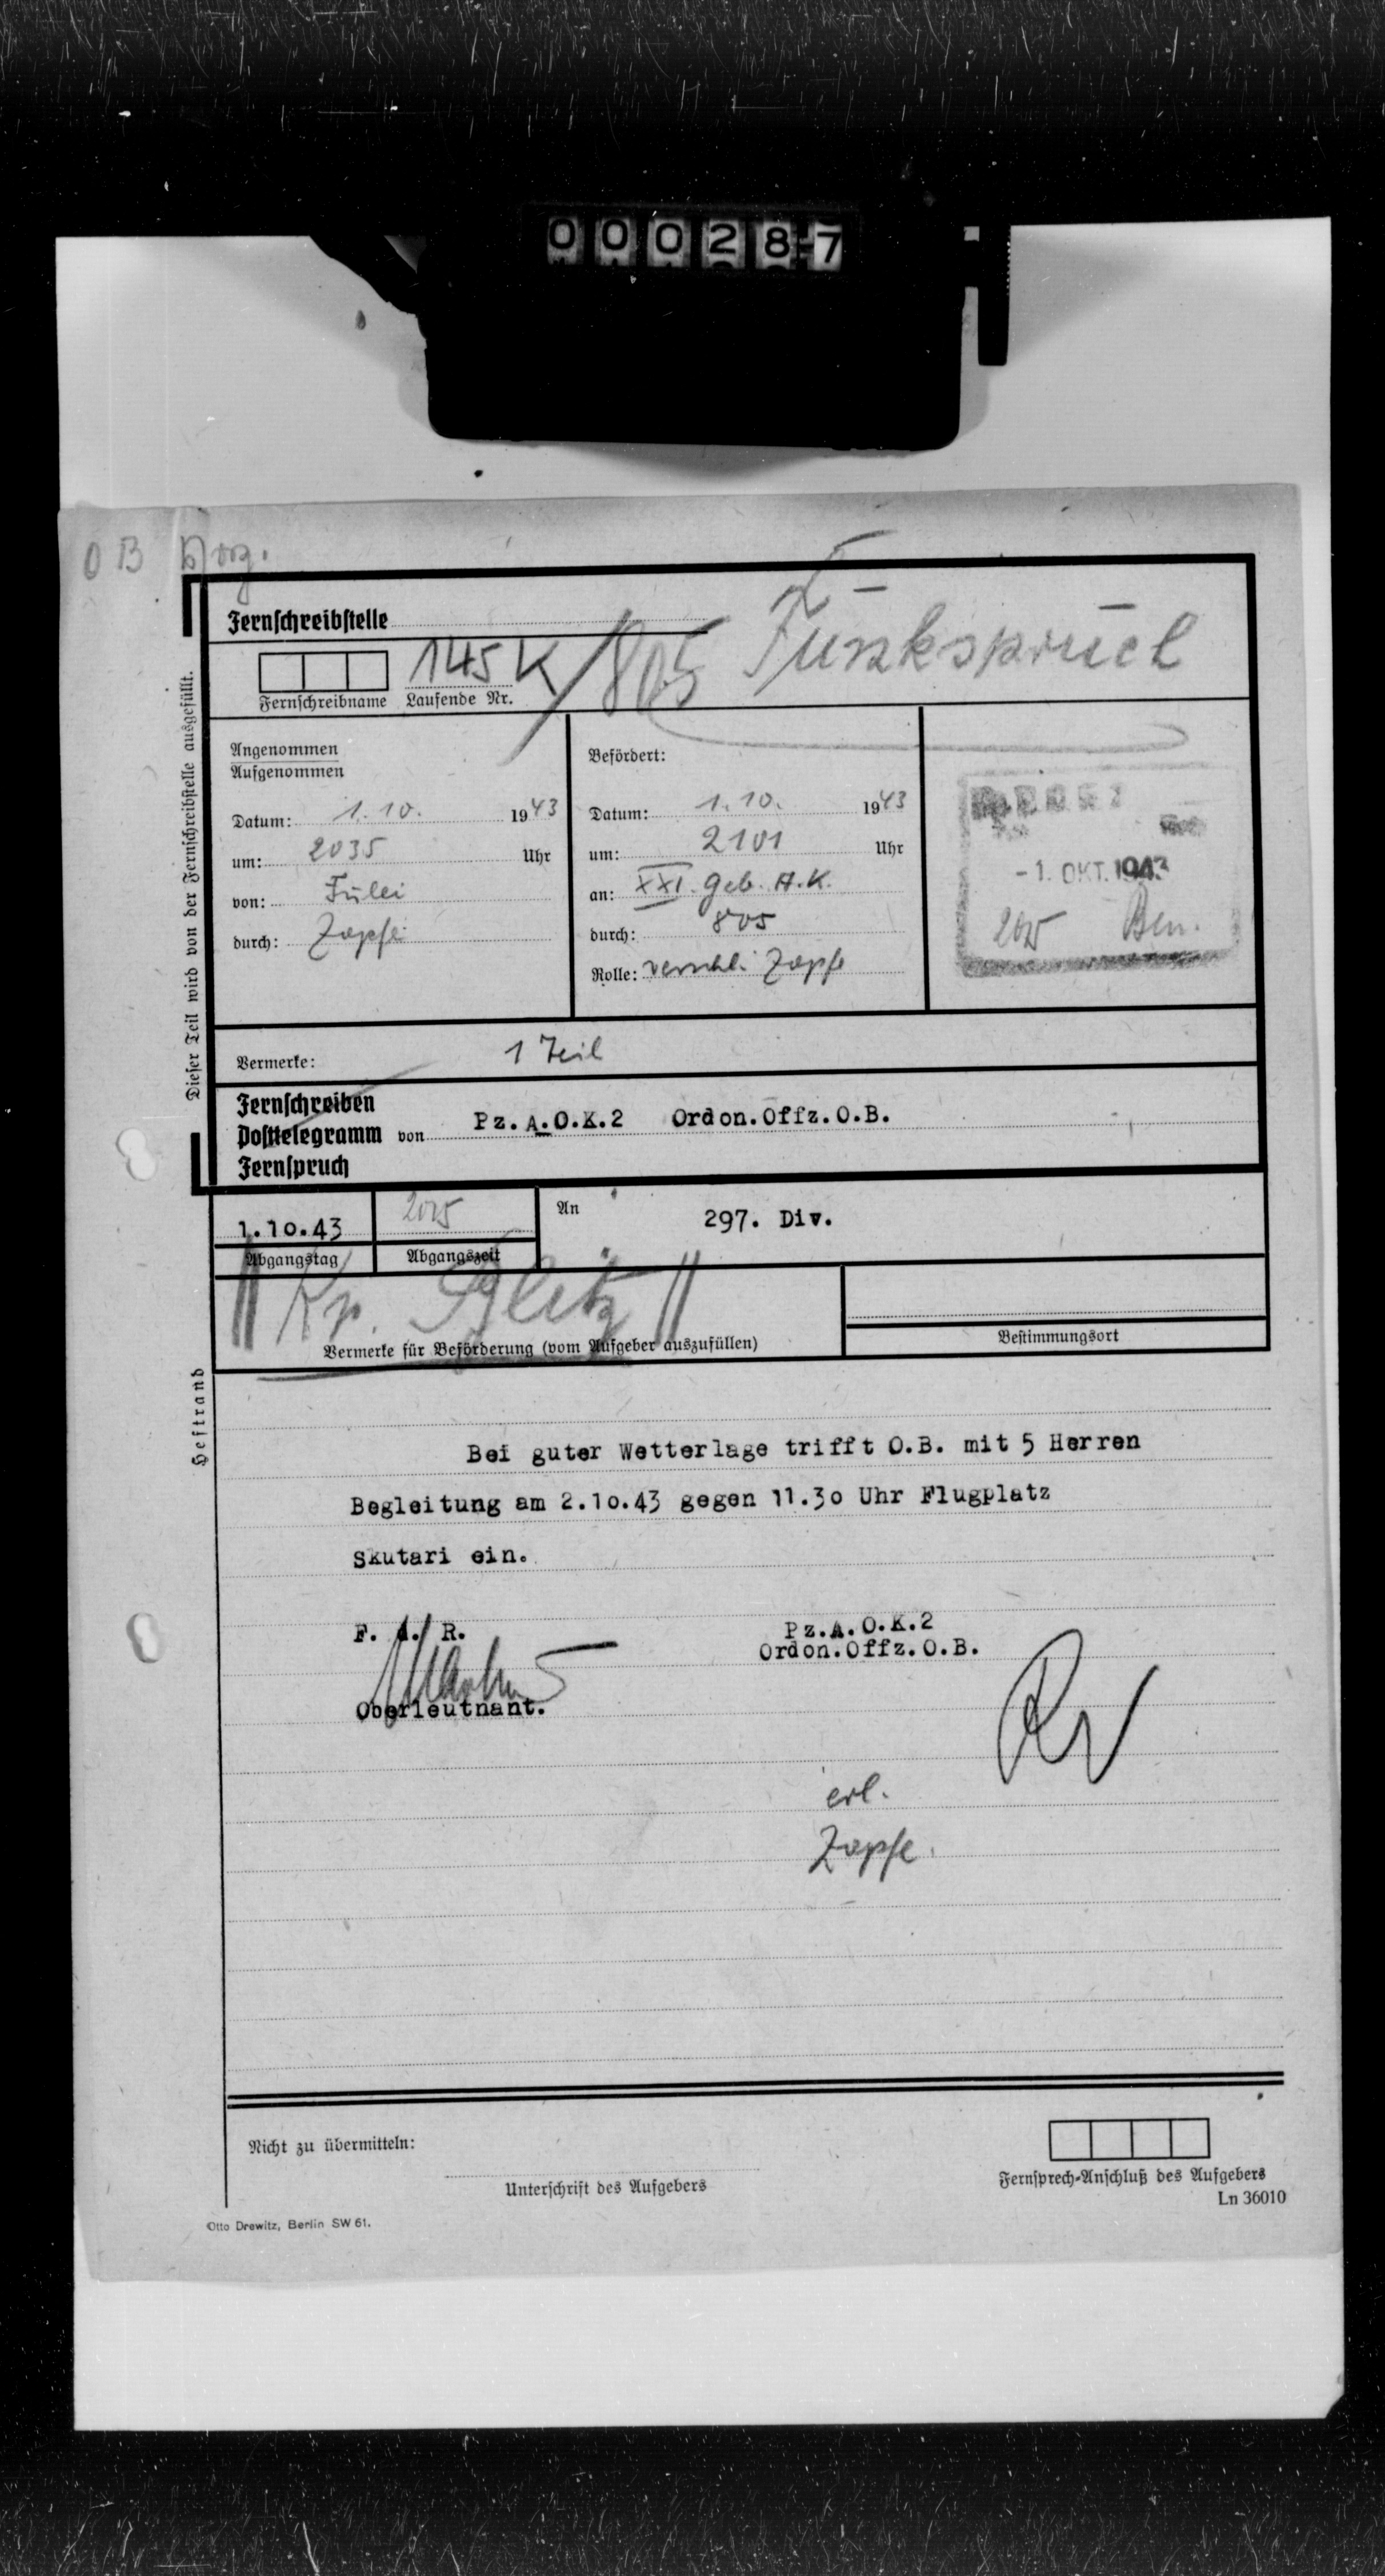 000287
OB
Fernschreibstelle
Funkspruch
145 K / 805
Fernschreibname Laufende Nr.
Dieser Teil wird von der Fernschreibstelle ausgefüllt.
Angenommen
Aufgenommen
Datum: 1.10. 1943
um: 2035 Uhr
von: Fülei
durch: Zapfe
Befördert:
Datum: 1.10. 1943
um: 2101 Uhr
an: XXI. Geb. A.K.
durch: 805
Rolle: verschl. Zapfe
-1. OKT. 1943
Vermerke: 1 Teil
Fernschreiben
Posttelegramm von Pz.A.O.K.2 Ordon.Offz.O.B.
Fernspruch
1.10.43
Abgangstag
Abgangszeit
An 297. Div.
Kr. Blitz
Vermerke für Beförderung (vom Aufgeber auszufüllen)
Bestimmungsort
Heftrand
Bei guter Wetterlage trifft O.B. mit 5 Herren
Begleitung am 2.10.43 gegen 11.30 Uhr Flugplatz
Skutari ein.
F. d. R.
Pz.A.O.K.2
Ordon.Offz.O.B.
Oberleutnant.
erl.
Zapfe.
Nicht zu übermitteln:
Unterschrift des Aufgebers
Fernsprech-Anschluß des Aufgebers
Ln 36010
Otto Drewitz, Berlin SW 61.